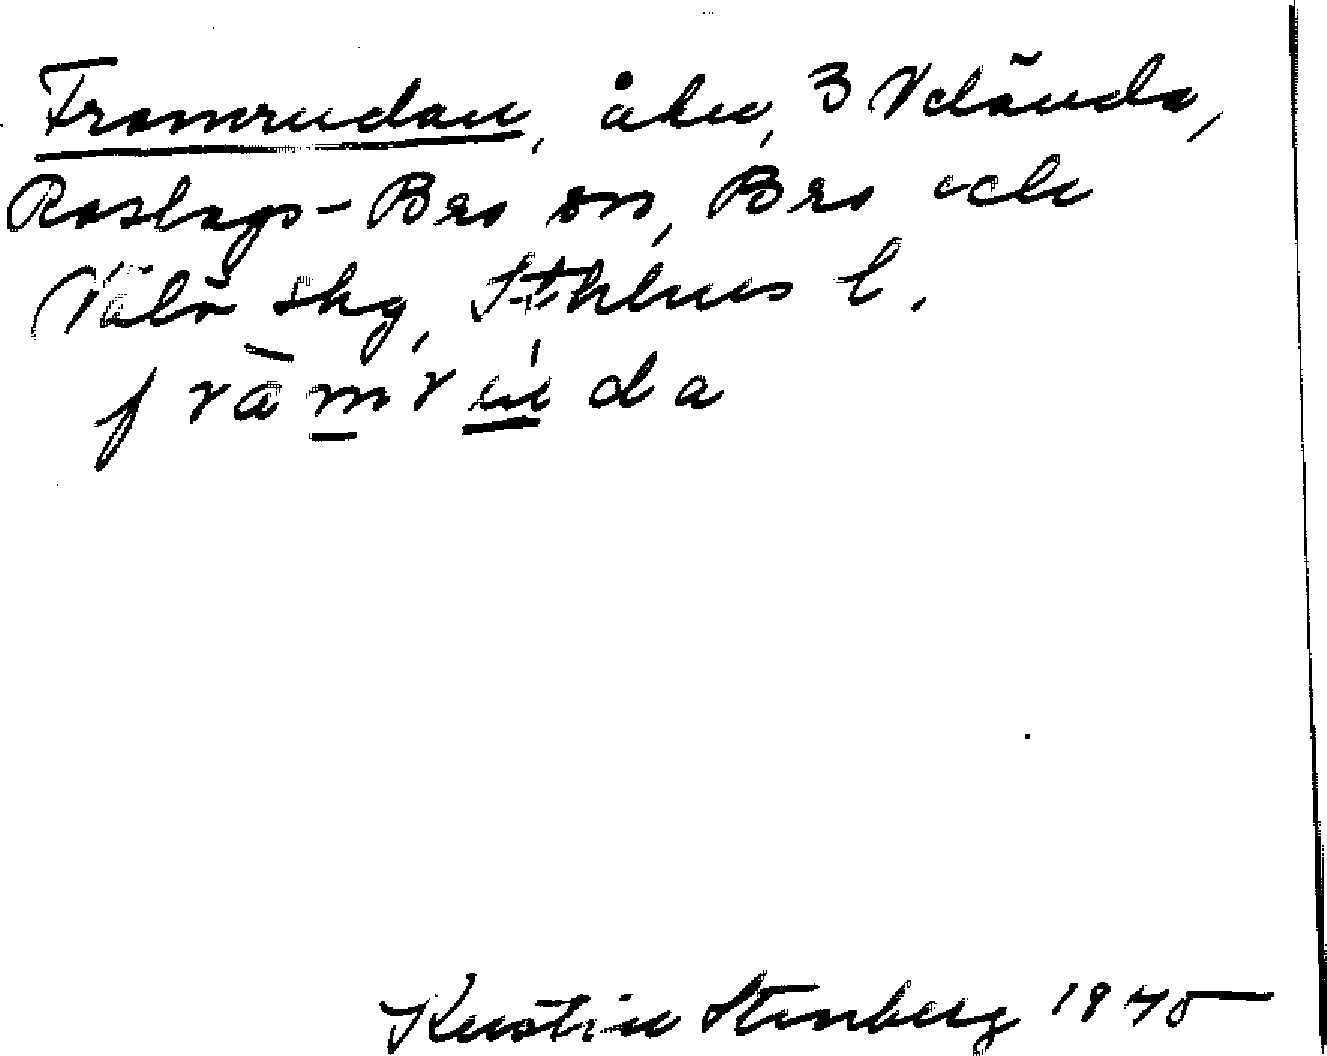 Framrudan, åker, 3 Vdlånda,
Roslags-Bro sn, Bro och
Väłö skg, Sthlms l.
fràmrúda
Kerstin Stenberg 1945